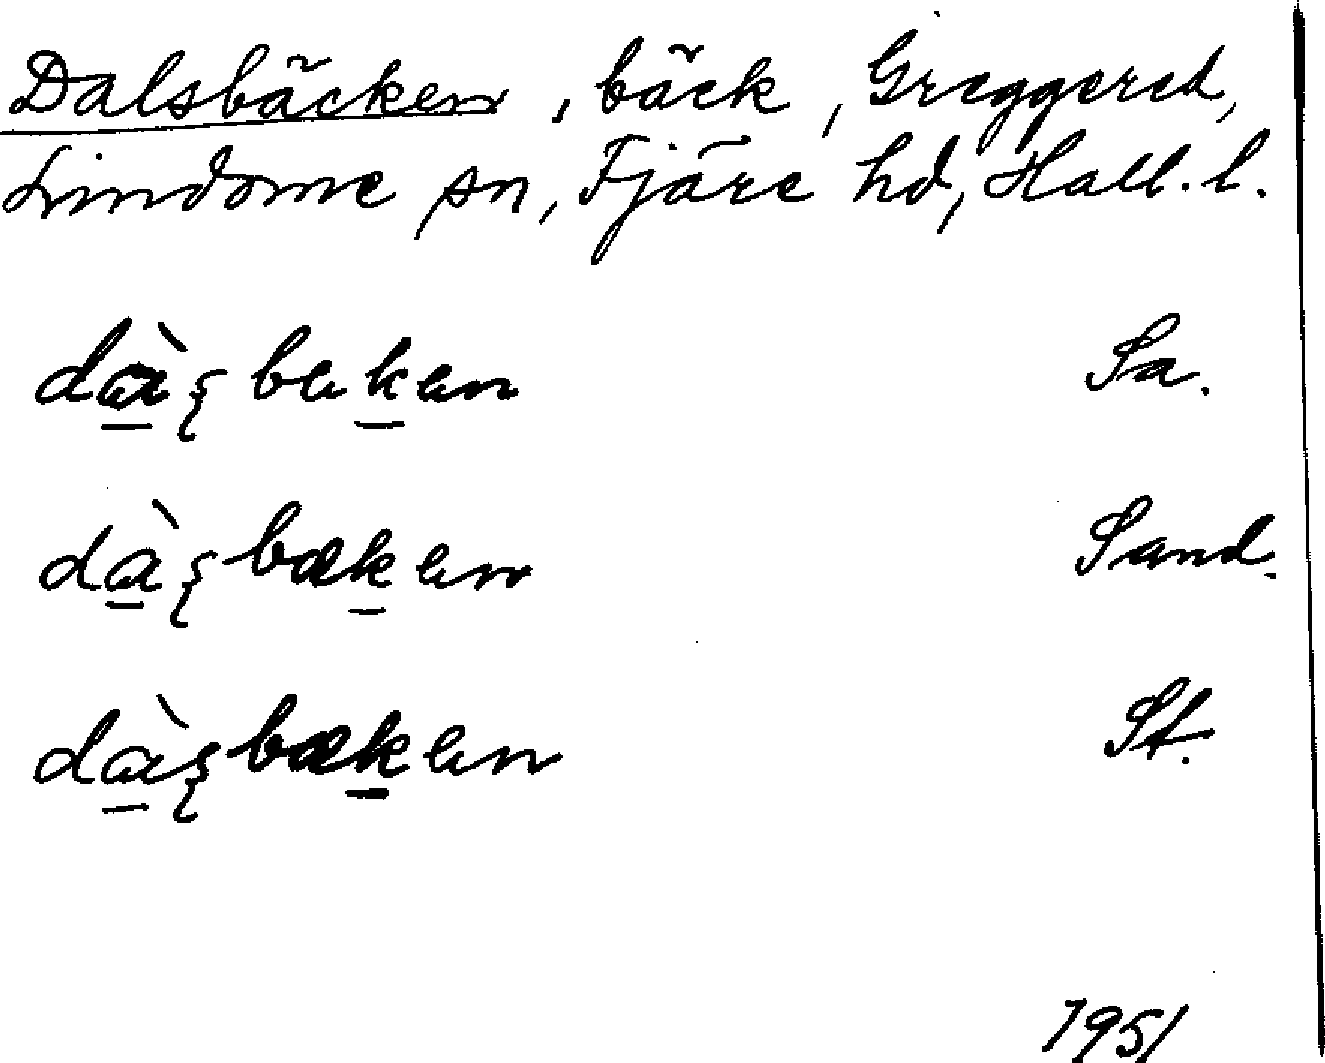 Dalsbäcken, bäck, Greggered,
Lindome sn, Fjäre hd, Hall. l.
dà̠ʂbɐk̠ɐn Sa.
dà̠ʂbæk̠ɐn Sand.
dà̠ʂbæk̠ɐn St.
1951